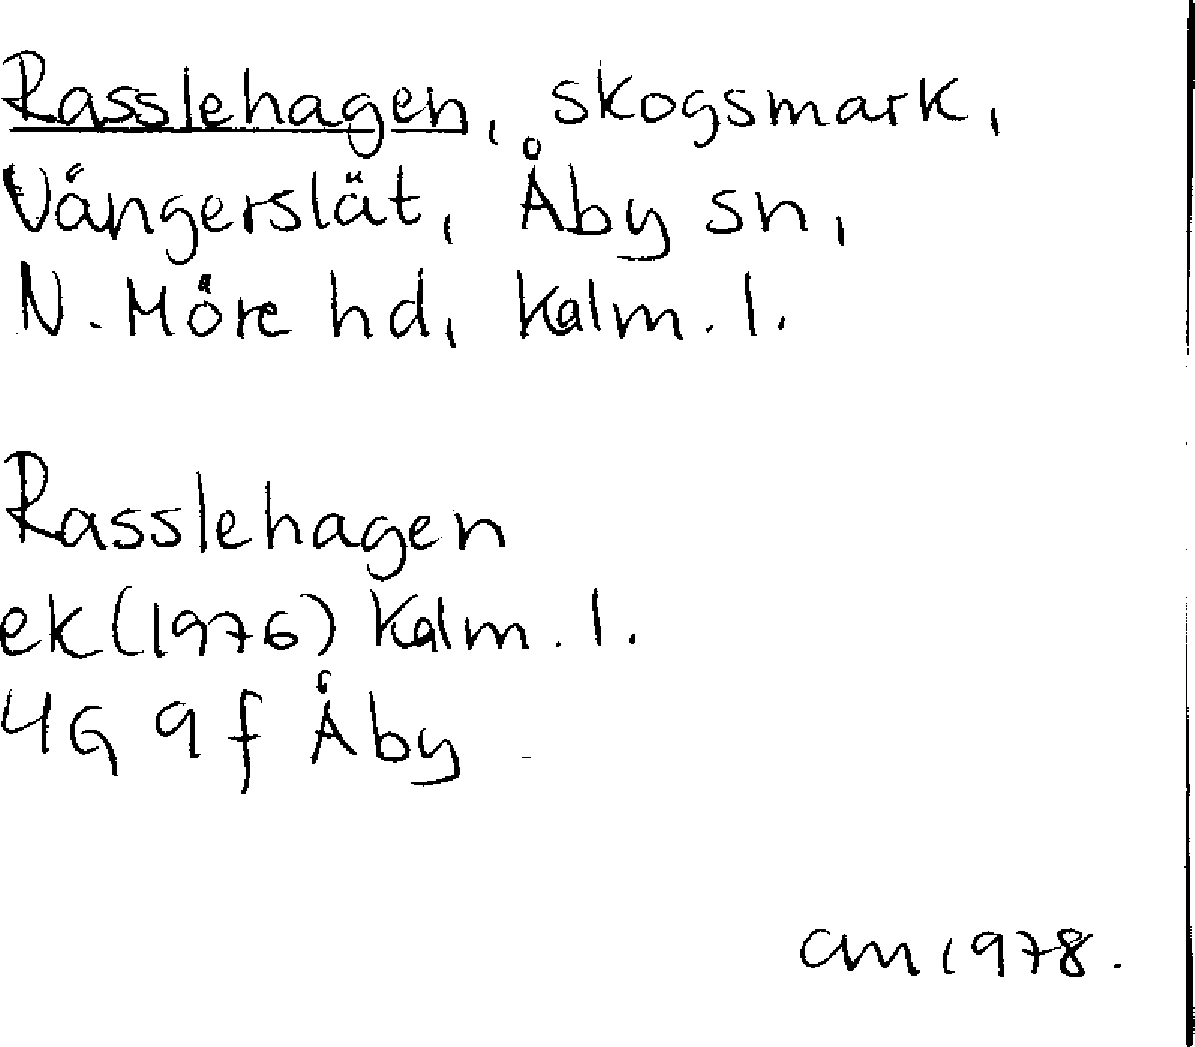 Rasslehagen, skogsmark,
Vångerslät, Åby sn,
N. Möre hd, Kalm. l.
Rasslehagen
ek (1976) Kalm. l.
4G 9f Åby
CM 1978.